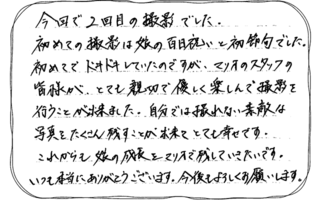 今回で2回目の撮影でした。
初めての撮影は娘の百日祝いと初節句でした。
初めてでドキドキしていたのですが、マリオのスタッフの
皆様が、とても親切で優しく楽しんで撮影を
行うことが出来ました。自分では撮れない素敵な
写真をたくさん残すことが出来てとても幸せです。
これからも、娘の成長をマリオで残していきたいです。
いつも本当にありがとうございます。今後もよろしくお願いします。